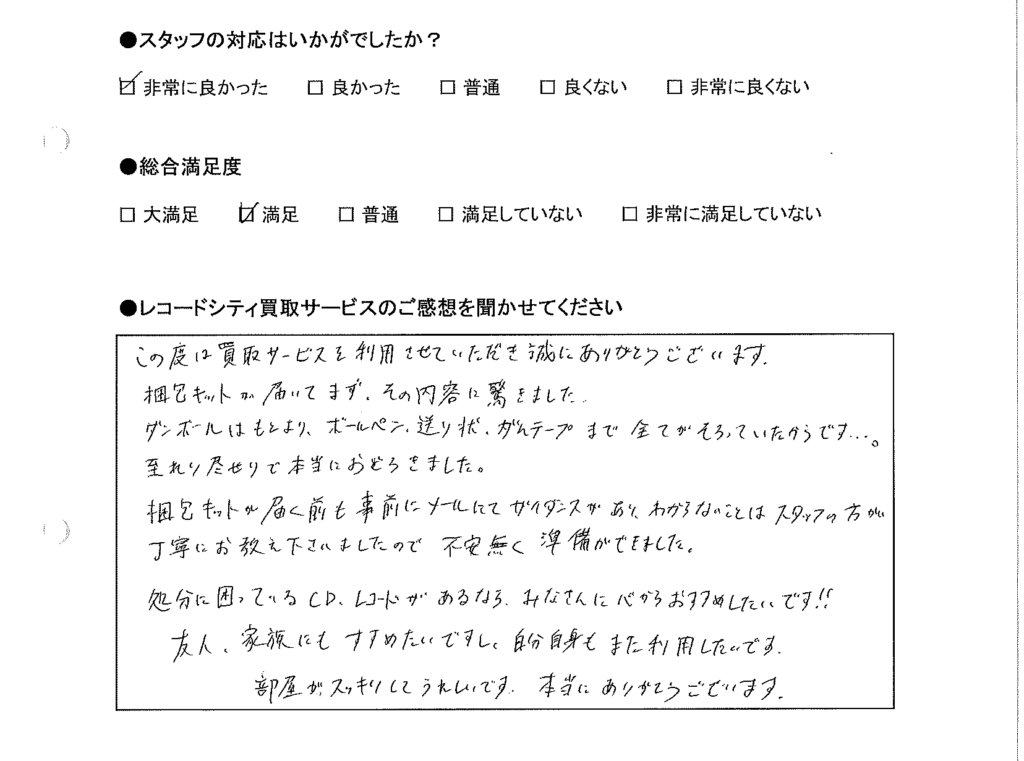 ●スタッフの対応はいかがでしたか？
☑ 非常に良かった □ 良かった □ 普通 □ 良くない □ 非常に良くない
●総合満足度
□ 大満足 ☑ 満足 □ 普通 □ 満足していない □ 非常に満足していない
●レコードシティ買取サービスのご感想を聞かせてください
この度は買取サービスを利用させていただき誠にありがとうございます.
梱包キットが届いてまず、その内容に驚きました.
ダンボールはもとより、ボールペン、送り状、ガムテープまで全てがそろっていたからです…。
至れり尽せりで本当におどろきました。
梱包キットが届く前も事前にメールにてガイダンスがあり、わからないことはスタッフの方が
丁寧にお教え下さいましたので 不安無く 準備ができました。
処分に困っているCD、レコードがあるなら、みなさんに心からおすすめしたいです!!
友人、家族にもすすめたいですし、自分自身もまた利用したいです.
部屋がスッキリしてうれしいです. 本当にありがとうございます.